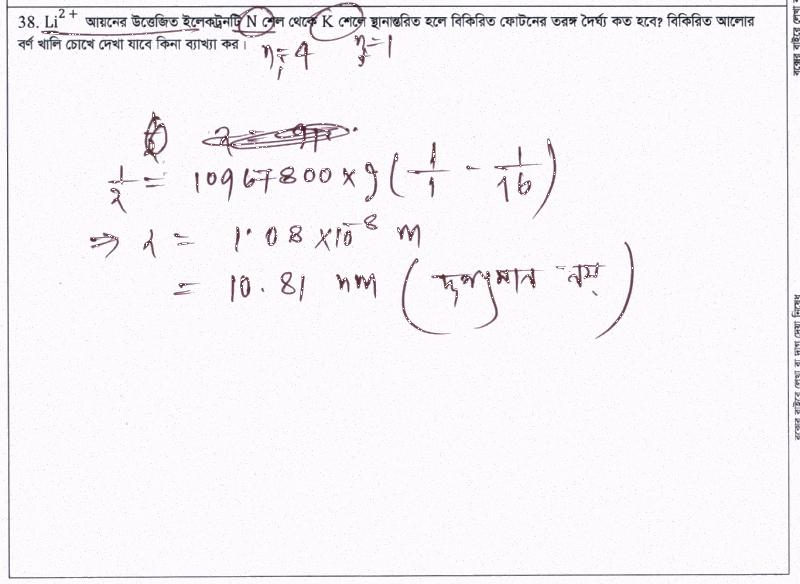 38. Li²⁺ আয়নের উত্তেজিত ইলেকট্রনটি N শেল থেকে K শেলে স্থানান্তরিত হলে বিকিরিত ফোটনের তরঙ্গ দৈর্ঘ্য কত হবে? বিকিরিত আলোর
বর্ণ খালি চোখে দেখা যাবে কিনা ব্যাখ্যা কর।
n₁=4 n₂=1
1/λ = 10967800 × 9 (1/1 - 1/16)
⇒ λ = 1.08 × 10⁻⁸ m
= 10.81 nm (দৃশ্যমান নয়)